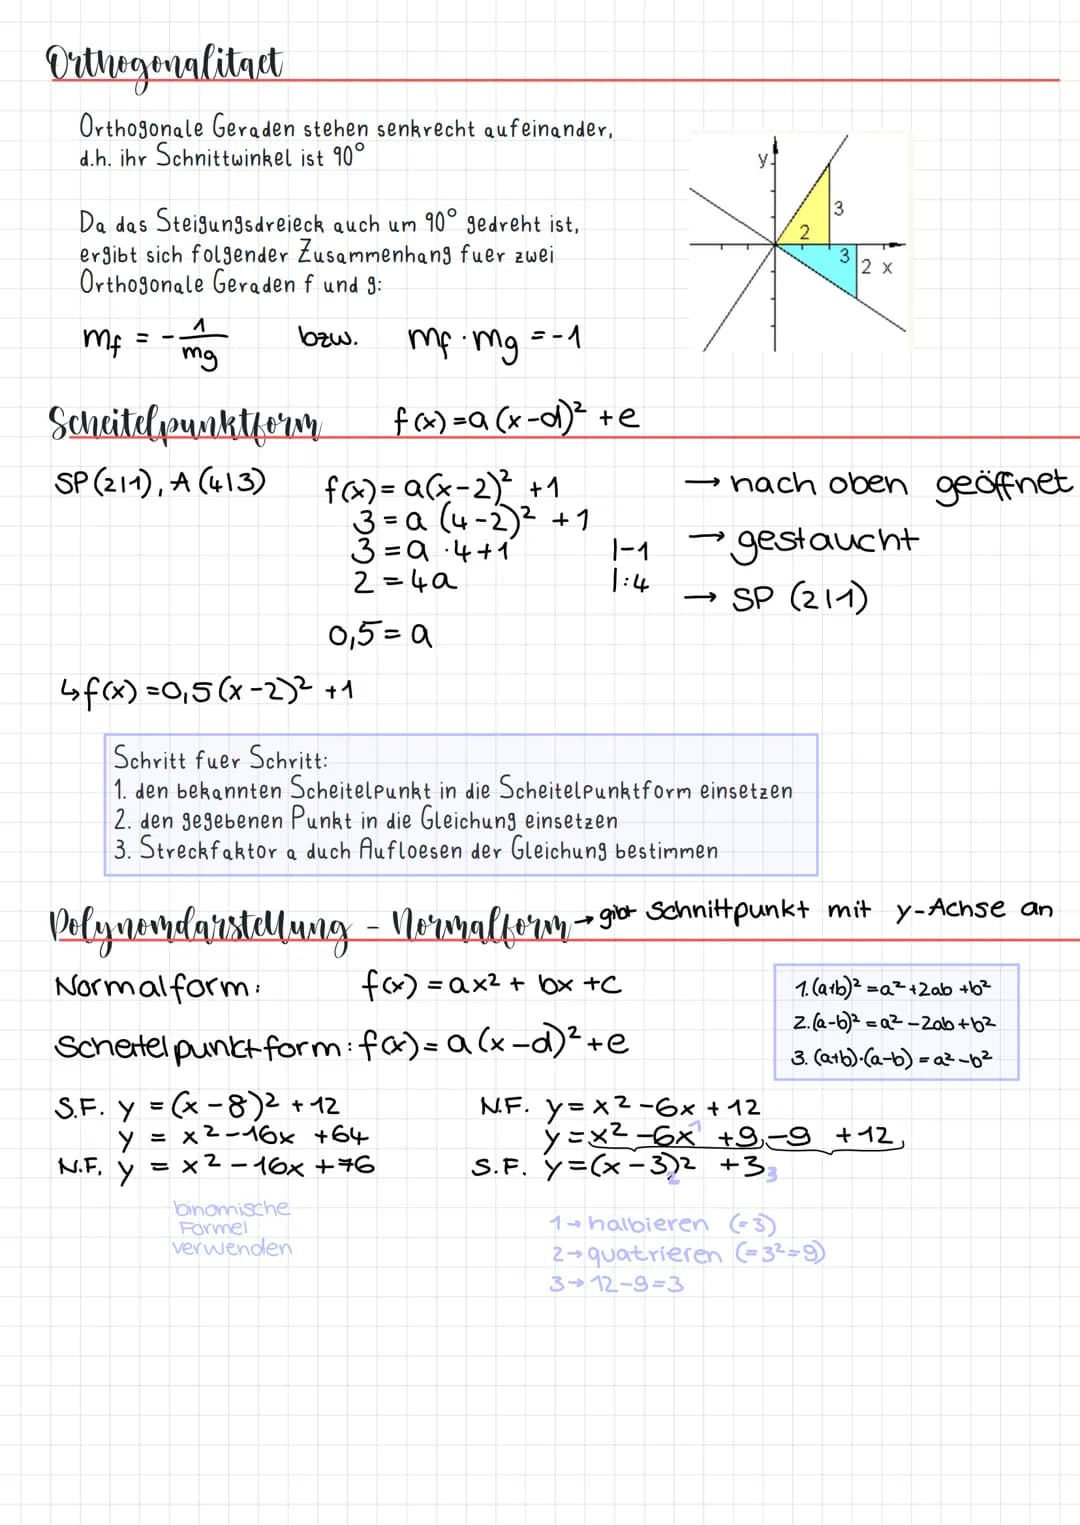 Orthogonalitaet
Orthogonale Geraden stehen senkrecht aufeinander,
d.h. ihr Schnittwinkel ist 90°
Da das Steigungsdreieck auch um 90° gedreht ist,
ergibt sich folgender Zusammenhang fuer zwei
Orthogonale Geraden f und g:
y
3
2
3
2 x
mf = - 1/mg bzw. mf · mg = -1
Scheitelpunktform f(x) = a (x-d)² + e
SP (2|1), A (4|3)
f(x) = a(x-2)² +1
3 = a (4-2)² +1
3 = a · 4+1 |-1
2 = 4a |:4
0,5 = a
→ nach oben geöffnet
→ gestaucht
→ SP (2|1)
↳ f(x) = 0,5 (x-2)² +1
Schritt fuer Schritt:
1. den bekannten Scheitelpunkt in die Scheitelpunktform einsetzen
2. den gegebenen Punkt in die Gleichung einsetzen
3. Streckfaktor a duch Aufloesen der Gleichung bestimmen
Polynomdarstellung - Normalform → gibt Schnittpunkt mit y-Achse an
Normalform: f(x) = ax² + bx + c
Scheitelpunktform: f(x) = a (x-d)² + e
1. (a+b)² = a² + 2ab + b²
2. (a-b)² = a² - 2ab + b²
3. (a+b)·(a-b) = a² - b²
S.F. y = (x-8)² + 12
y = x² - 16x + 64
N.F. y = x² - 16x + 76
binomische
Formel
verwenden
N.F. y = x² - 6x + 12
y = x² - 6x 1 + 9 - 9 + 12
S.F. y = (x-3)² 2 + 3 3
1 → halbieren (= 3)
2 → quatrieren (= 3² = 9)
3 → 12 - 9 = 3